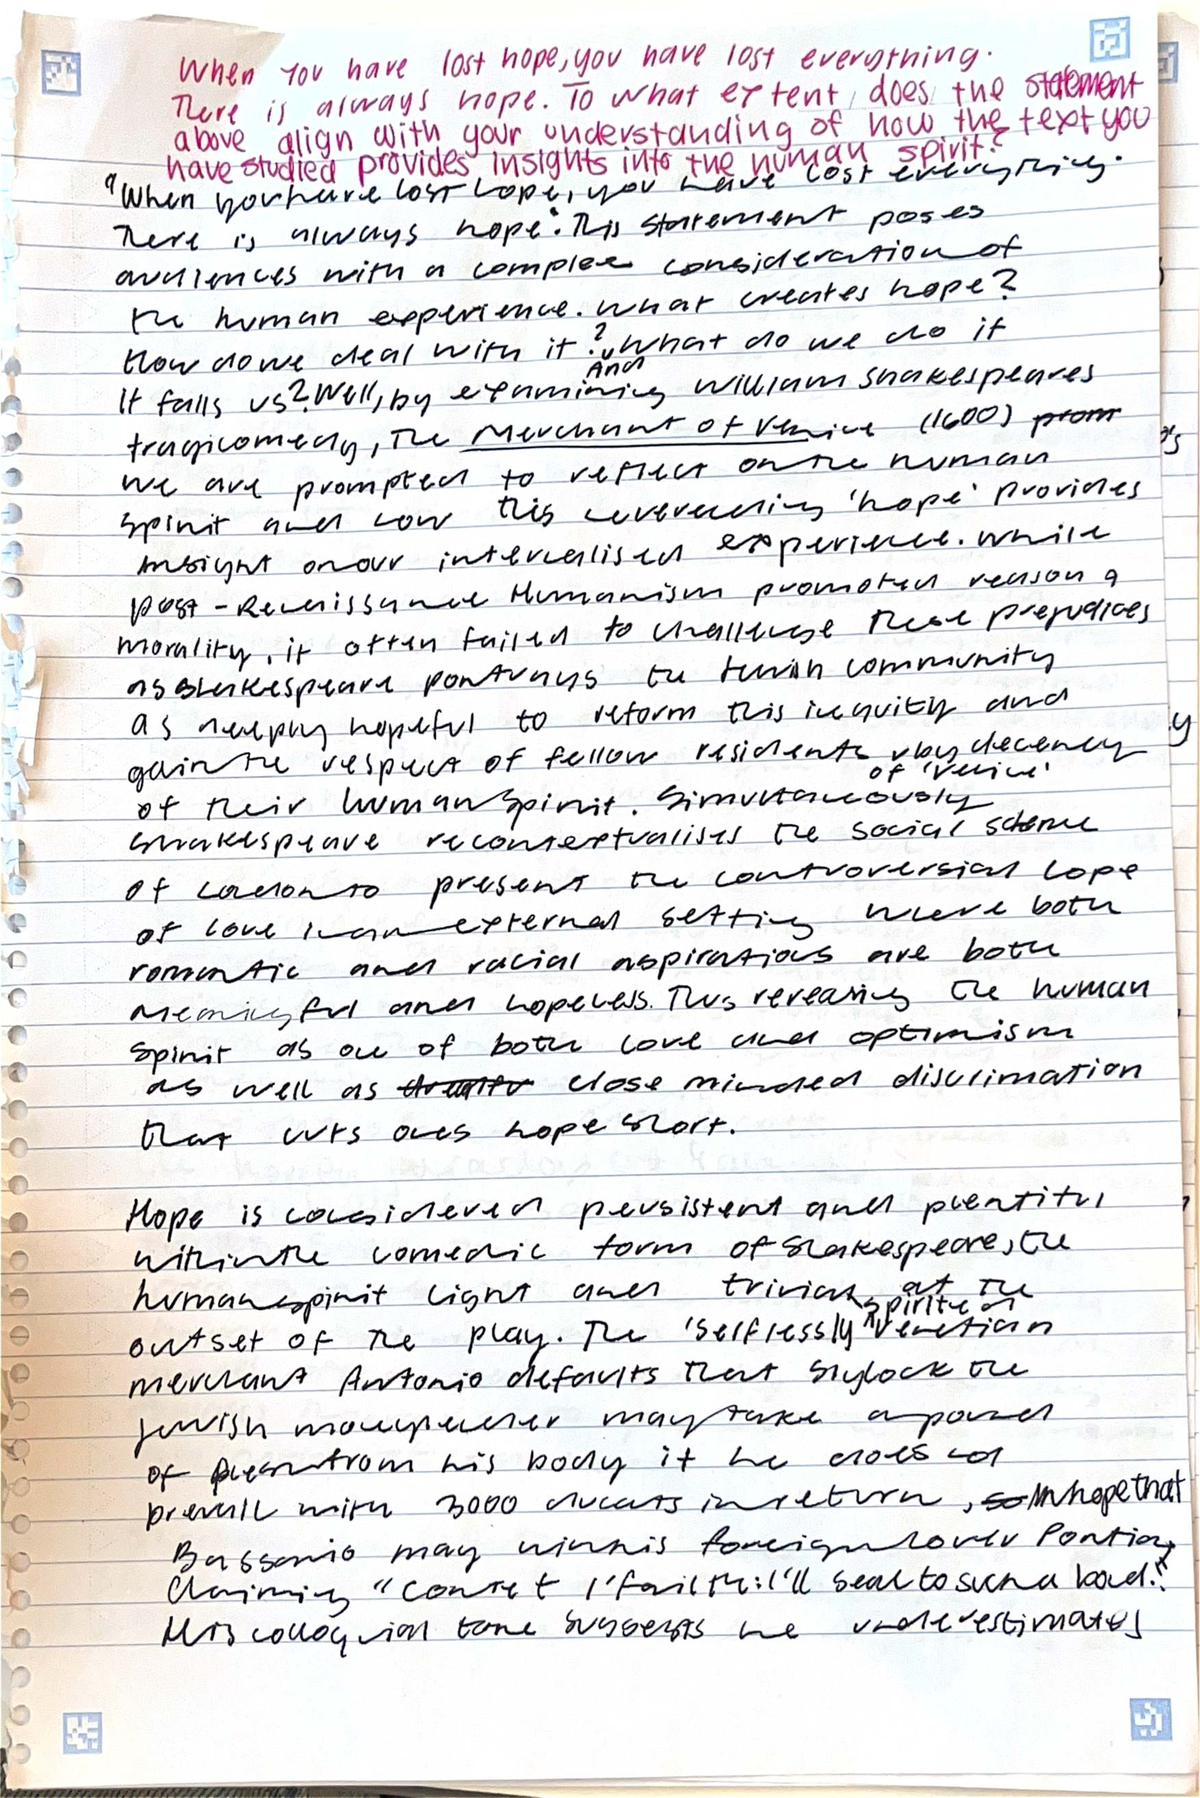 When you have lost hope, you have lost everything.
There is always hope. To what extent, does the statement
above align with your understanding of how the text you
have studied provides insights into the human spirit?
"When you have lost hope, you have lost everything.
There is always hope". This statement poses
audiences with a complex consideration of
the human experience. What creates hope?
How do we deal with it? And what do we do if
it fails us? Well, by examining William Shakespeares
tragicomedy, The Merchant of Venice (1600)
we are prompted to reflect on the human
spirit and how this 'hope' provides
insight on our internalised experience. While
post-Renaissance Humanism promoted reason &
morality, it often failed to challenge these prejudices
as Shakespeare portrays the Jewish community
as deeply hopeful to reform this inequity and
gain the respect of fellow residents of 'Venice' by decency
of their human spirit. Simultaneously
Shakespeare recontextualises the social scheme
of London to present the controversial hope
of love in an external setting where both
romantic and racial aspirations are both
meaningful and hopeless. Thus revealing the human
spirit as one of both love and optimism
as well as close minded discrimation
that cuts ones hope short.
Hope is considered persistent and plentiful
within the comedic form of Shakespeare, the
human spirit light and trivial at the
outset of the play. The 'selflessly' spirited Venetian
merchant Antonio defaults that Shylock the
Jewish moneylender may take a pound
of flesh from his body if he does not
prevail with 3000 ducats in return, in hope that
Bassanio may win his foreign lover Portia,
Claiming "Content I'faith: I'll seal to such a bond."
His colloquial tone suggests he underestimates